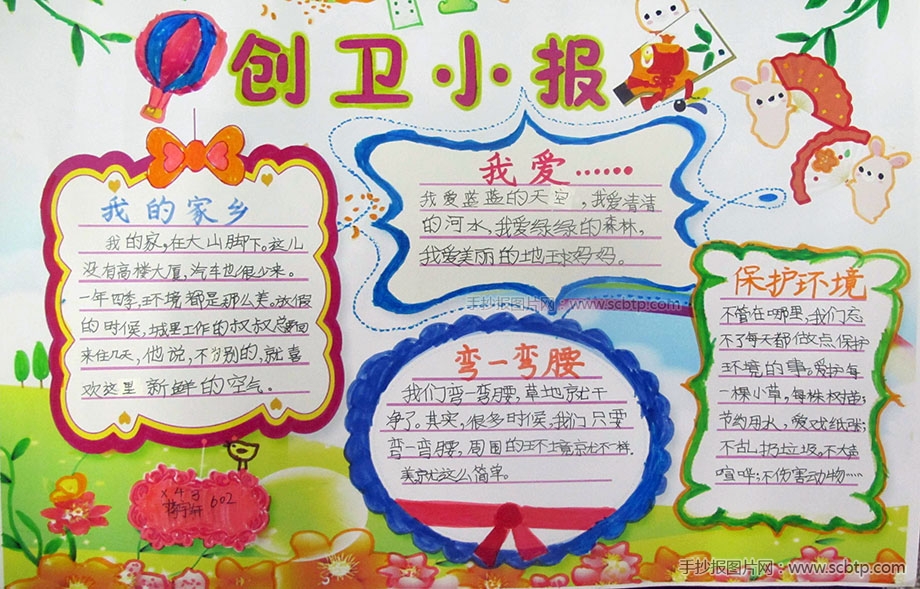 创卫小报
我的家乡
我的家,在大山脚下。这儿
没有高楼大厦,汽车也很少来。
一年四季,环境都是那么美。放假
的时候,城里工作的叔叔总要回
来住几天,他说,不为别的,就喜
欢这里新鲜的空气。
我爱……
我爱蓝蓝的天空,我爱清清
的河水,我爱绿绿的森林,
我爱美丽的地球妈妈。
手抄报图片网:www.scbtp.com
弯一弯腰
我们弯一弯腰,草地就干
净了。其实,很多时候,我们只要
弯一弯腰,周围的环境就不一样.
美就这么简单。
保护环境
不管在哪里,我们忘
不了每天都做点保护
环境的事。爱护每
一棵小草。每株树苗;
节约用水,爱戏纸张;
不乱扔垃圾。不大声
喧哗;不伤害动物……
602
手抄报图片网:www.scbtp.com